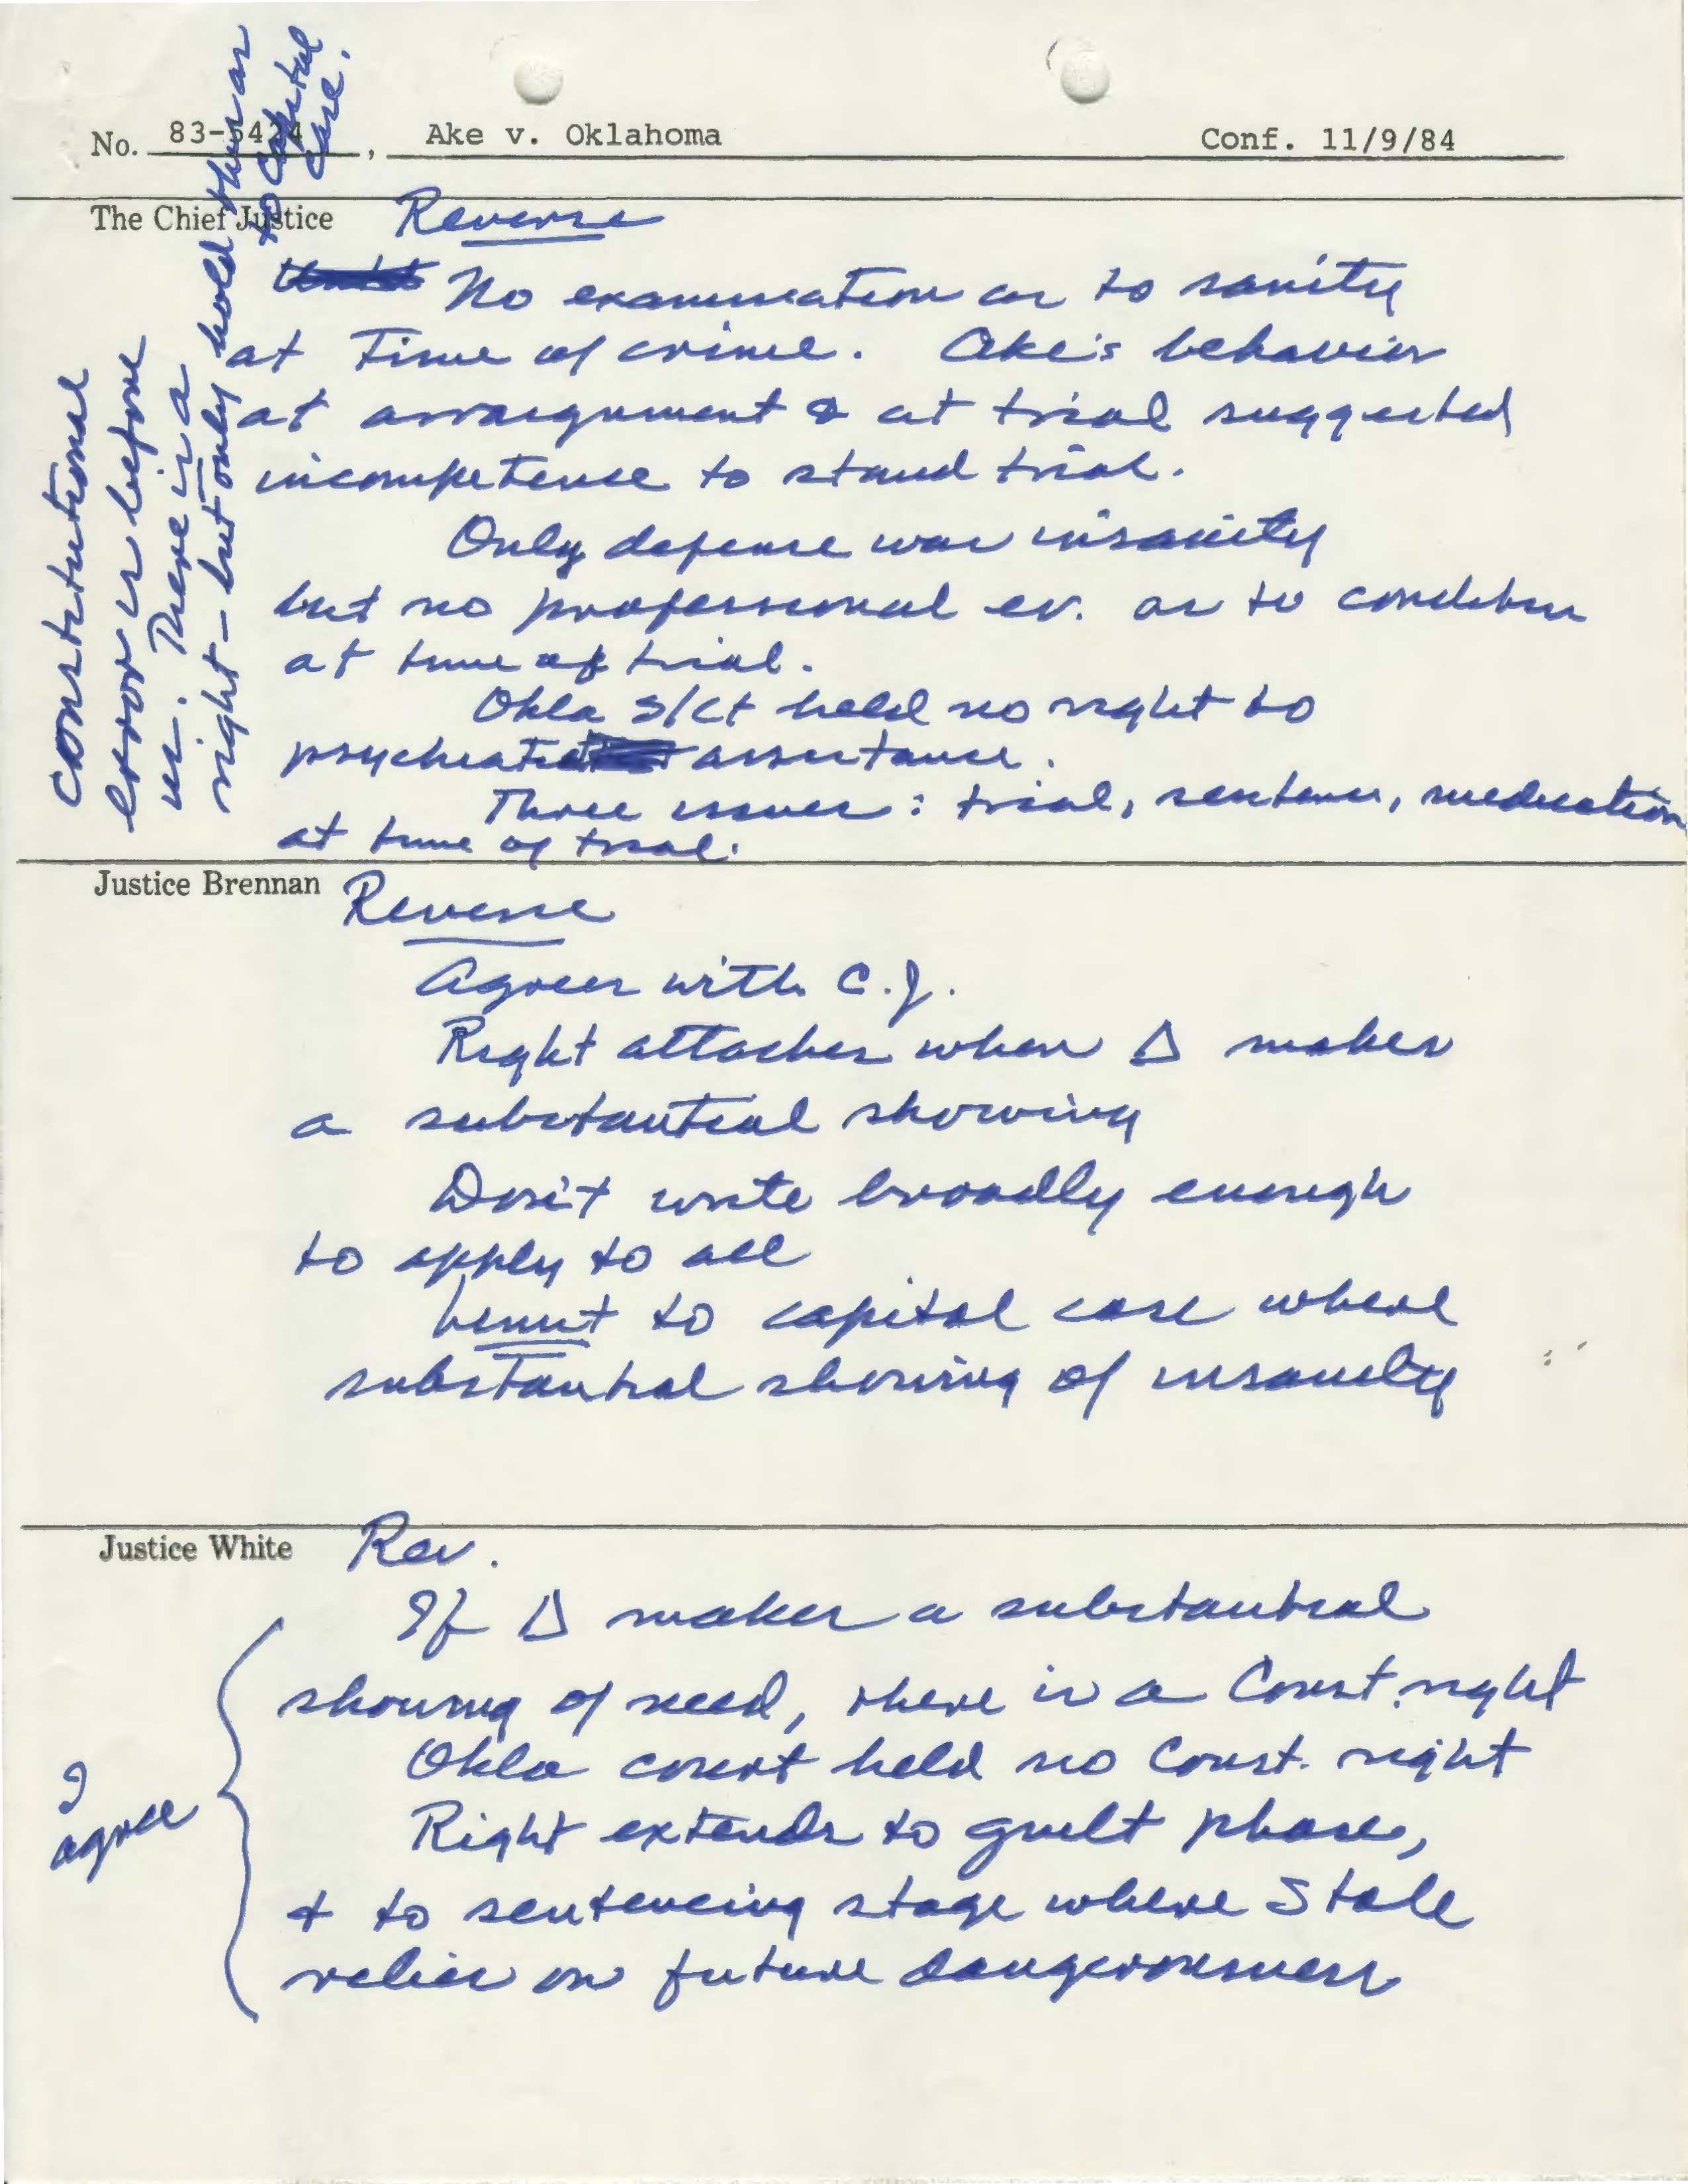 No. 83-5424, Ake v. Oklahoma Conf. 11/9/84
The Chief Justice Reverse
No examination as to sanity
at time of crime. Ake's behavior
at arraignment & at trial suggested
incompetence to stand trial.
Only defense was insanity
but no professional ev. as to condition
at time of trial.
Okla S/Ct held no right to
psychiatric assistance.
Three issues: trial, sentence, medication
at time of trial.
Constitutional
error is before
us. There is a
right - but only hold this as
to capital
case.
Justice Brennan Reverse
Agrees with C.J.
Right attaches when Δ makes
a substantial showing
Don't write broadly enough
to apply to all
Limit to capital case where
substantial showing of insanity
Justice White Rev.
If Δ makes a substantial
showing of need, there is a Const. right
Okla court held no Const. right
Right extends to guilt phase,
& to sentencing stage where State
relies on future dangerousness
I
agree